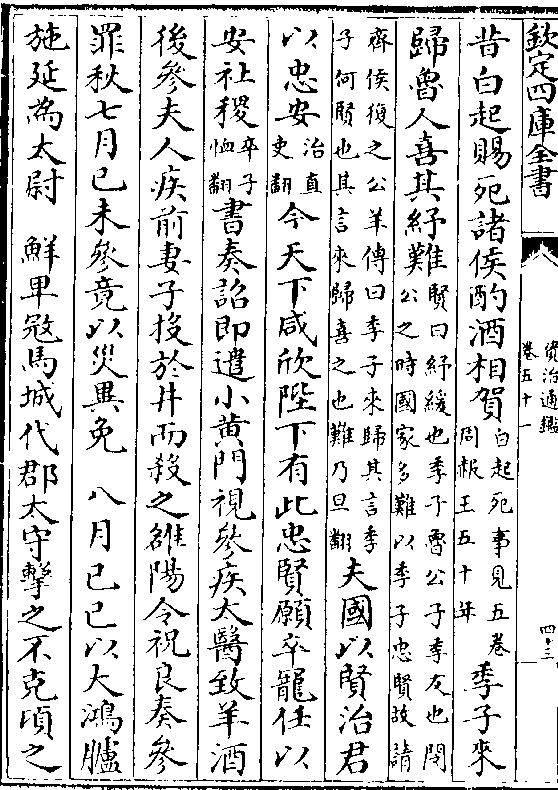 欽定四庫全書
資治通鑑
卷五十一
四十三
昔白起賜死諸侯酌酒相賀
白起死事見五卷
周赧王五十年
季子來
歸魯人喜其紓難
賢曰紓緩也季子魯公子季友也閔
公之時國家多難以季子忠賢故請
齊侯復之公羊傳曰季子來歸其言季
子何賢也其言來歸喜之也難乃旦翻
夫國以賢治君
以忠安
治直
吏翻
今天下咸欣陛下有此忠賢願卒寵任以
安社稷
卒子
恤翻
書奏詔即遣小黄門視參疾太醫致羊酒
後參夫人疾前妻子投於井而殺之雒陽令祝良奏參
罪秋七月己未參竟以災異免 八月己巳以大鴻臚
施延為太尉 鮮卑寇馬城代郡太守擊之不克頃之